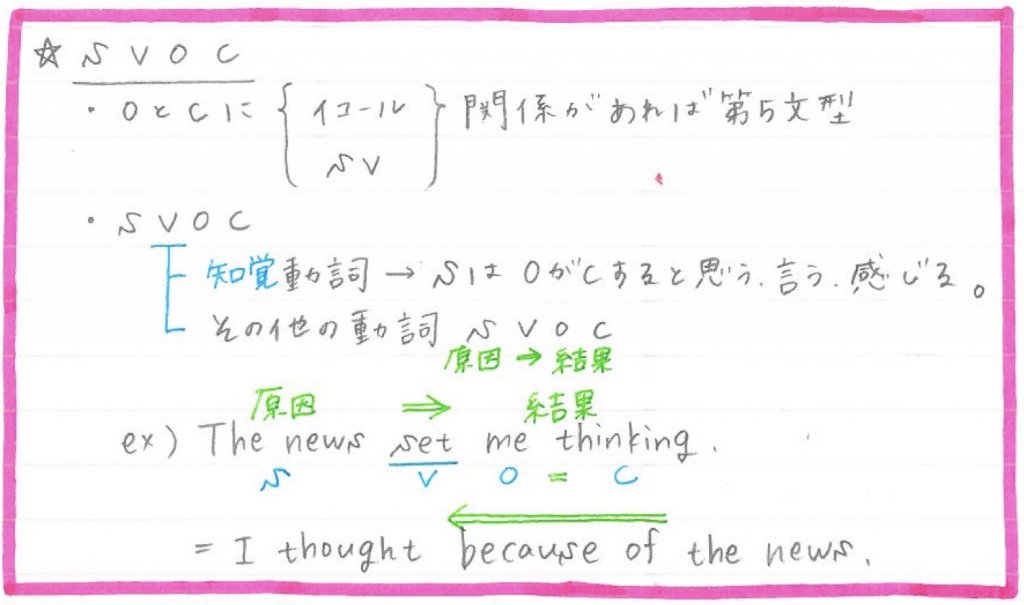 ☆ S V O C
・OとCに { イコール } 関係があれば第5文型
SV
・S V O C
知覚動詞 → SはOがCすると思う、言う、感じる。
その他の動詞 S V O C
原因 → 結果
原因 ⇒ 結果
ex) The news set me thinking.
S V O = C
= I thought because of the news.